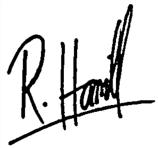 R. Hamill